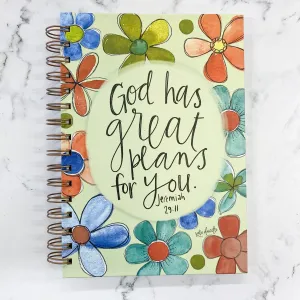 God has
great
plans
for you.
Jeremiah
29:11